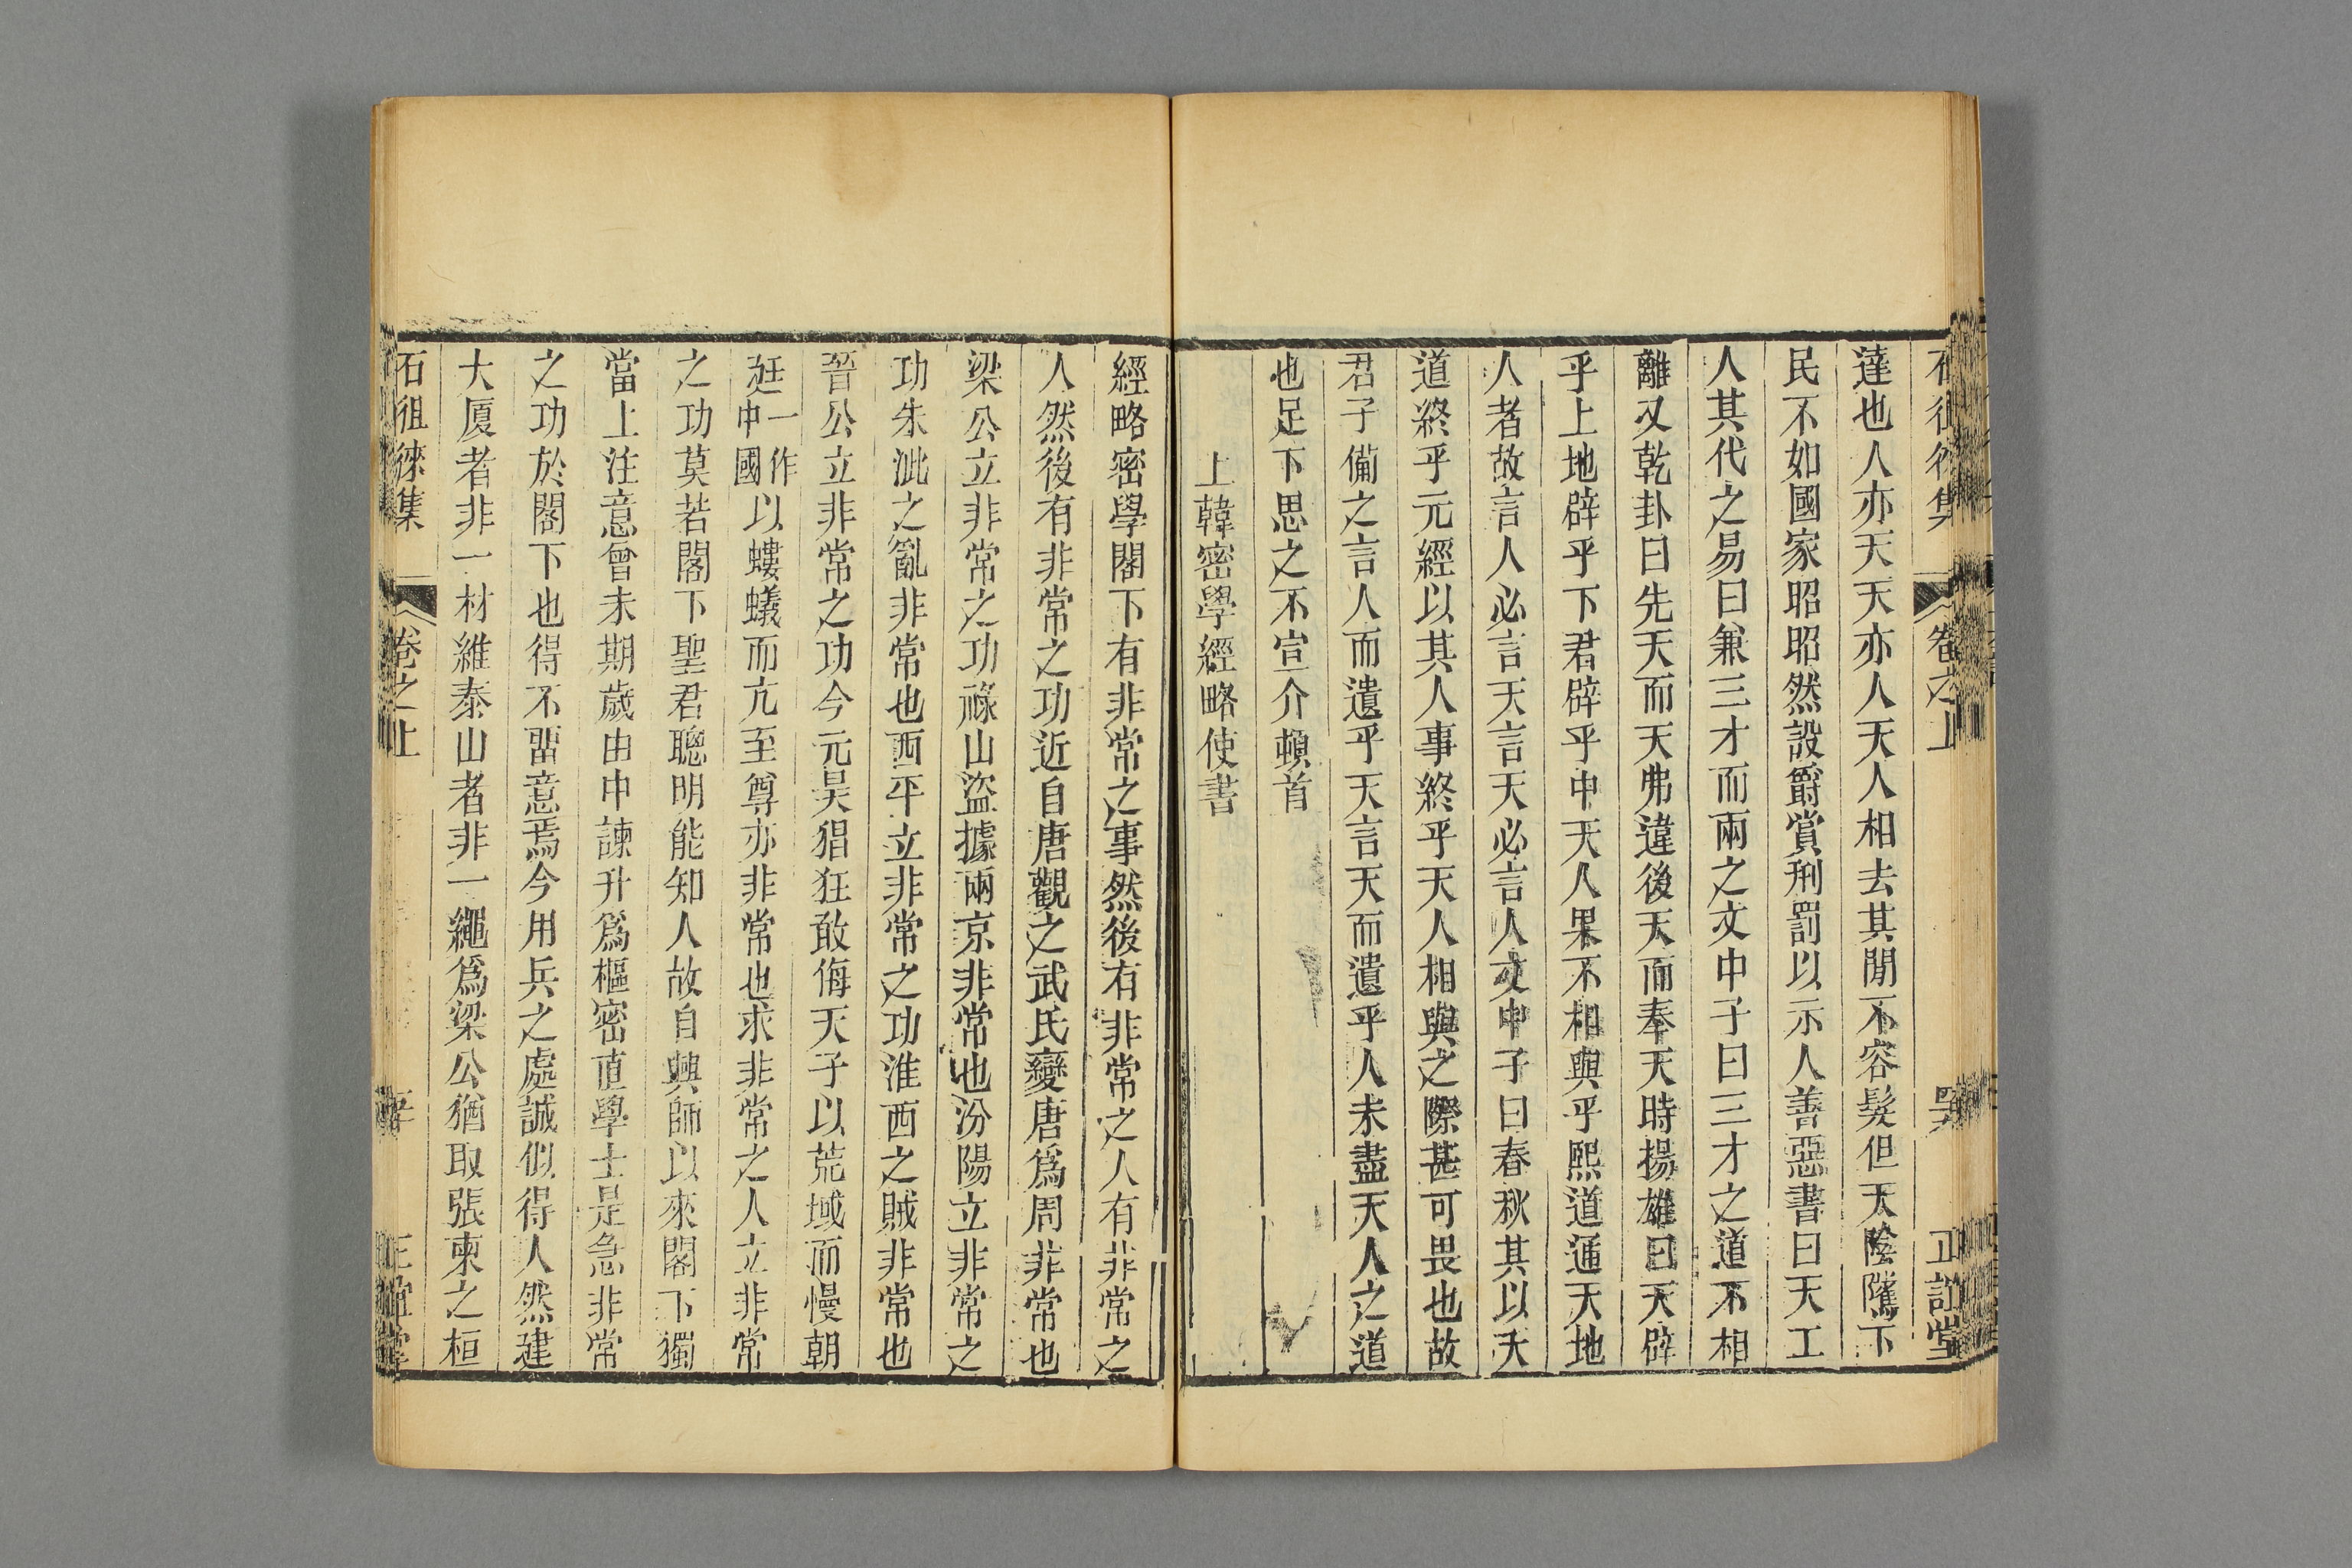 石徂徠集 卷之上 正誼堂
達也人亦天天亦人天人相去其間不容髮但天陰隲下
民不如國家昭昭然設爵賞刑罰以示人善惡書曰天工
人其代之易曰兼三才而兩之文中子曰三才之道不相
離又乾卦曰先天而天弗違後天而奉天時揚雄曰天辟
乎上地辟乎下君辟乎中天人果不相與乎熙道通天地
人者故言人必言天言天必言人文中子曰春秋其以天
道終乎元經以其人事終乎天人相與之際甚可畏也故
君子備之言人而遺乎天言天而遺乎人未盡天人之道
也足下思之不宣介頓首
上韓密學經略使書
經略密學閣下有非常之事然後有非常之人有非常之
人然後有非常之功近自唐觀之武氏變唐爲周非常也
梁公立非常之功祿山盜據兩京非常也汾陽立非常之
功朱泚之亂非常也西平立非常之功淮西之賊非常也
晉公立非常之功今元昊猖狂敢侮天子以荒域而慢朝
廷一作中國以螻蟻而亢至尊亦非常也求非常之人立非常
之功莫若閣下聖君聰明能知人故自興師以來閣下獨
當上注意曾未期歲由中諫升爲樞密直學士是急非常
之功於閣下也得不畱意焉今用兵之處誠似得人然建
大厦者非一材維泰山者非一繩爲梁公猶取張柬之桓
石徂徠集 卷之上 正誼堂